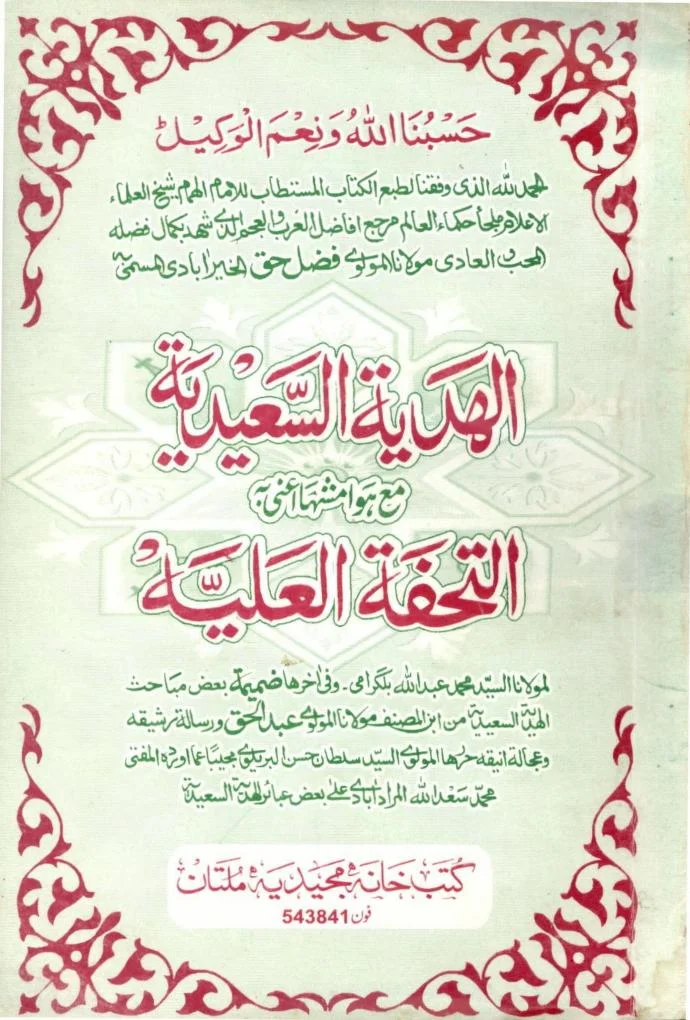 حَسْبُنَا اللهُ وَنِعْمَ الْوَكِيْلُ
الحمد لله الذى وفقنا لطبع الكتاب المستطاب للامام الهمام شيخ العلماء
الاعلام ملجأ حكماء العالم مرجع افاضل العرب والعجم الذى شهد بكمال فضله
المحب والعادى مولانا المولوى فضل حق الخير آبادى المسمى بـ
الهدية السَّعيْدية
مع هوامشها اعنى بـ
التحفة العلیَّة
لمولانا السيّد محمد عبد الله بلگرامى ۔ وفى اٰخرها ضميمة بعض مباحث
الهدية السعيدية من ابن المصنف مولانا المولوى عبد الحق ورسالة رشيقه
وعجالة انيقه حررها المولوى السيّد سلطان حسن البريلوى مجيبًا عما اورده المفتى
محمّد سعد الله المرادآبادى على بعض عبائر الهدية السعيدية
کُتب خَانہ مجیدیہ مُلتان
فون 543841